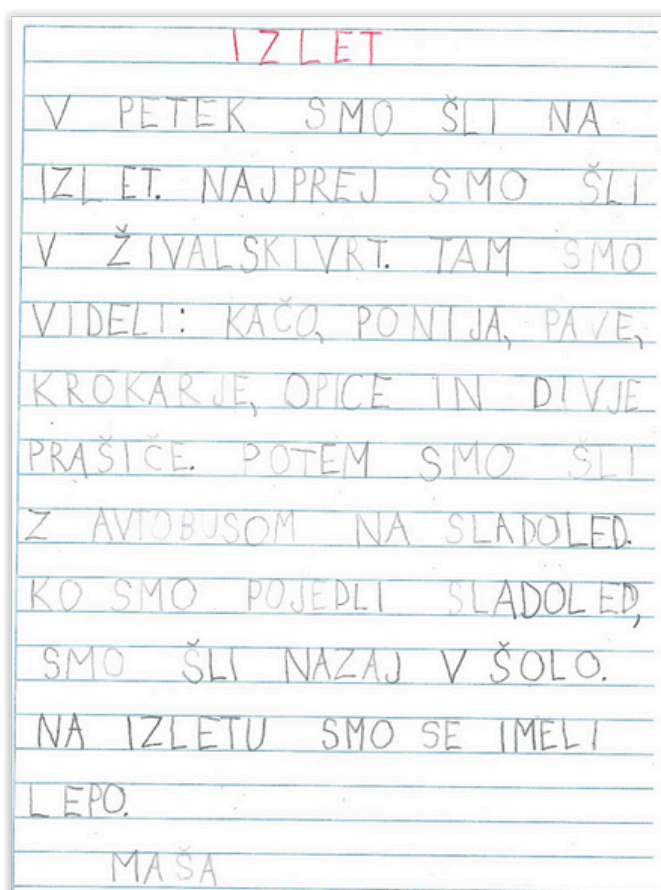 IZLET
V PETEK SMO ŠLI NA
IZLET. NAJPREJ SMO ŠLI
V ŽIVALSKI VRT. TAM SMO
VIDELI: KAČO, PONIJA, PAVE,
KROKARJE, OPICE IN DIVJE
PRAŠIČE. POTEM SMO ŠLI
Z AVTOBUSOM NA SLADOLED.
KO SMO POJEDLI SLADOLED,
SMO ŠLI NAZAJ V ŠOLO.
NA IZLETU SMO SE IMELI
LEPO.
MAŠA